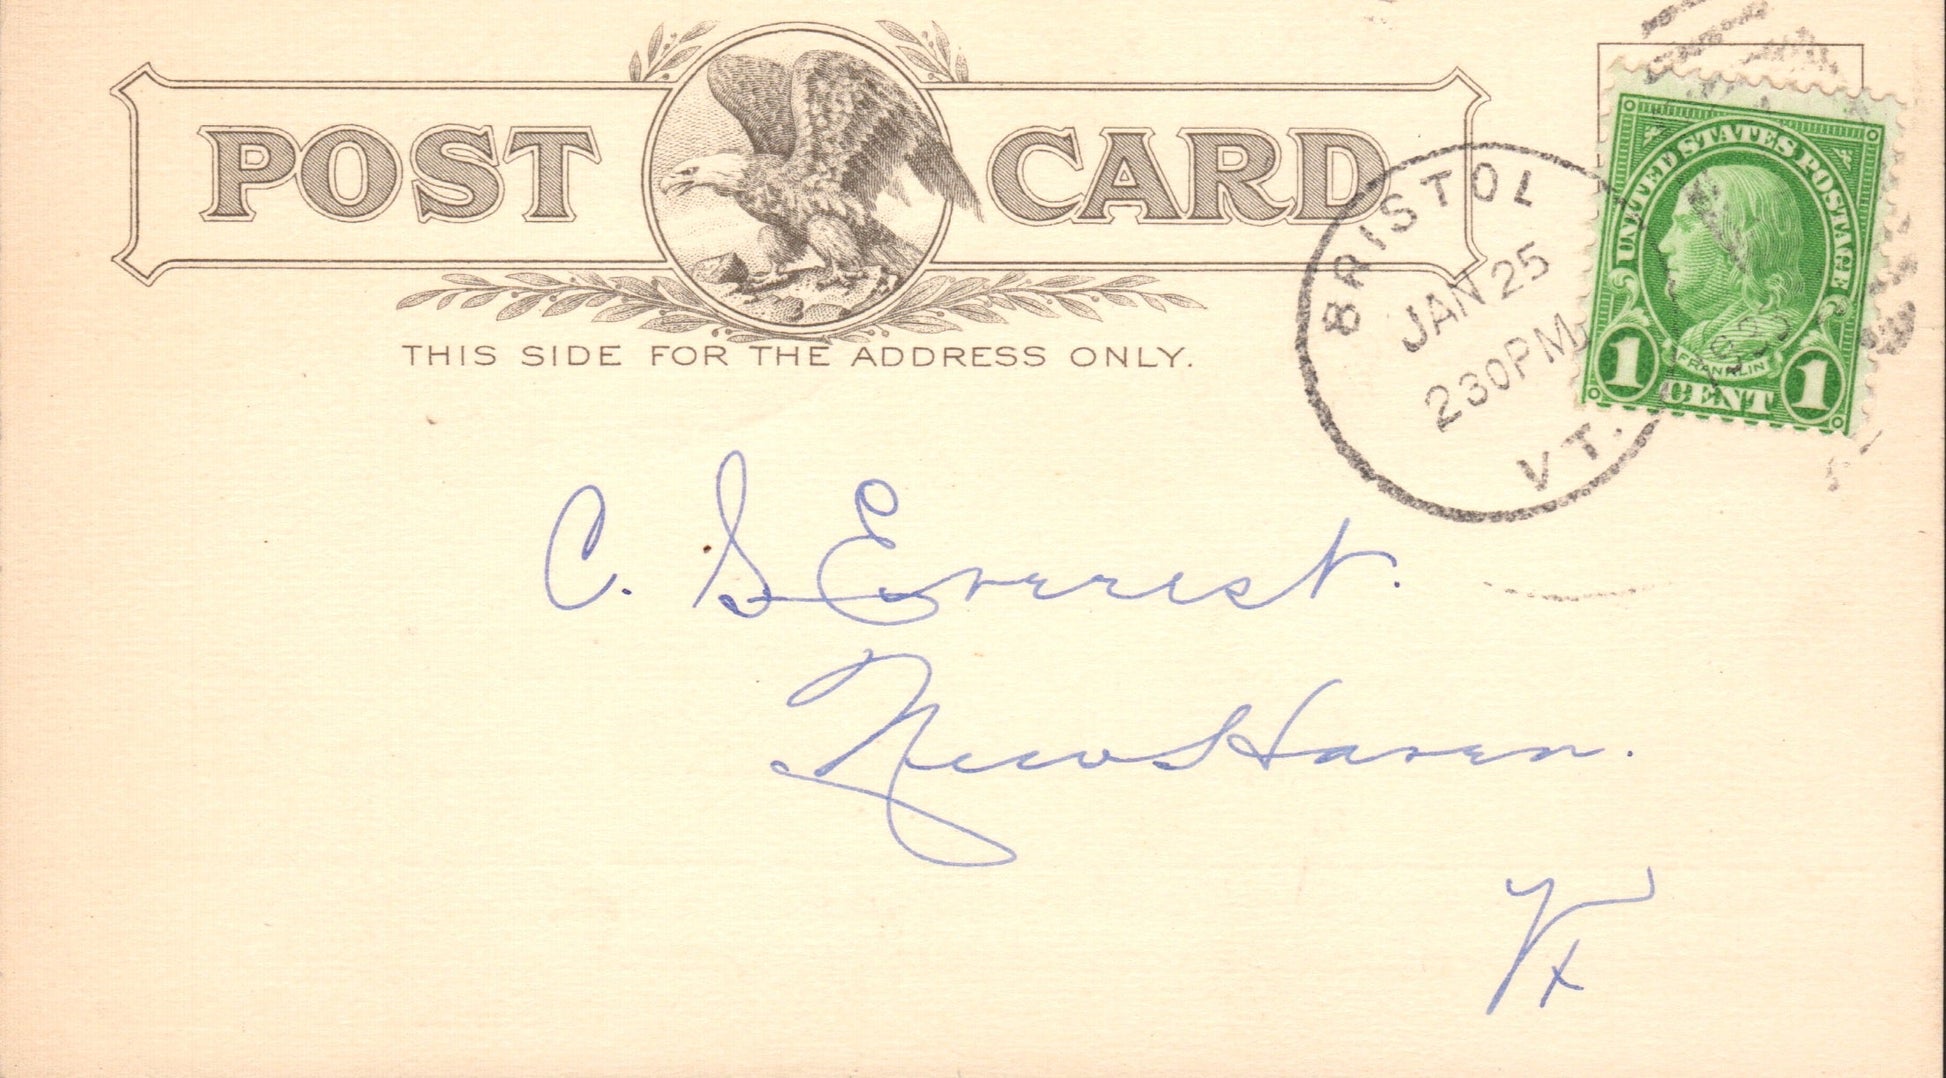 POST CARD
THIS SIDE FOR THE ADDRESS ONLY.
BRISTOL
JAN 25
230PM
VT.
UNITED STATES POSTAGE
FRANKLIN
1 CENT 1
C. S Everest.
New Haven.
Vt